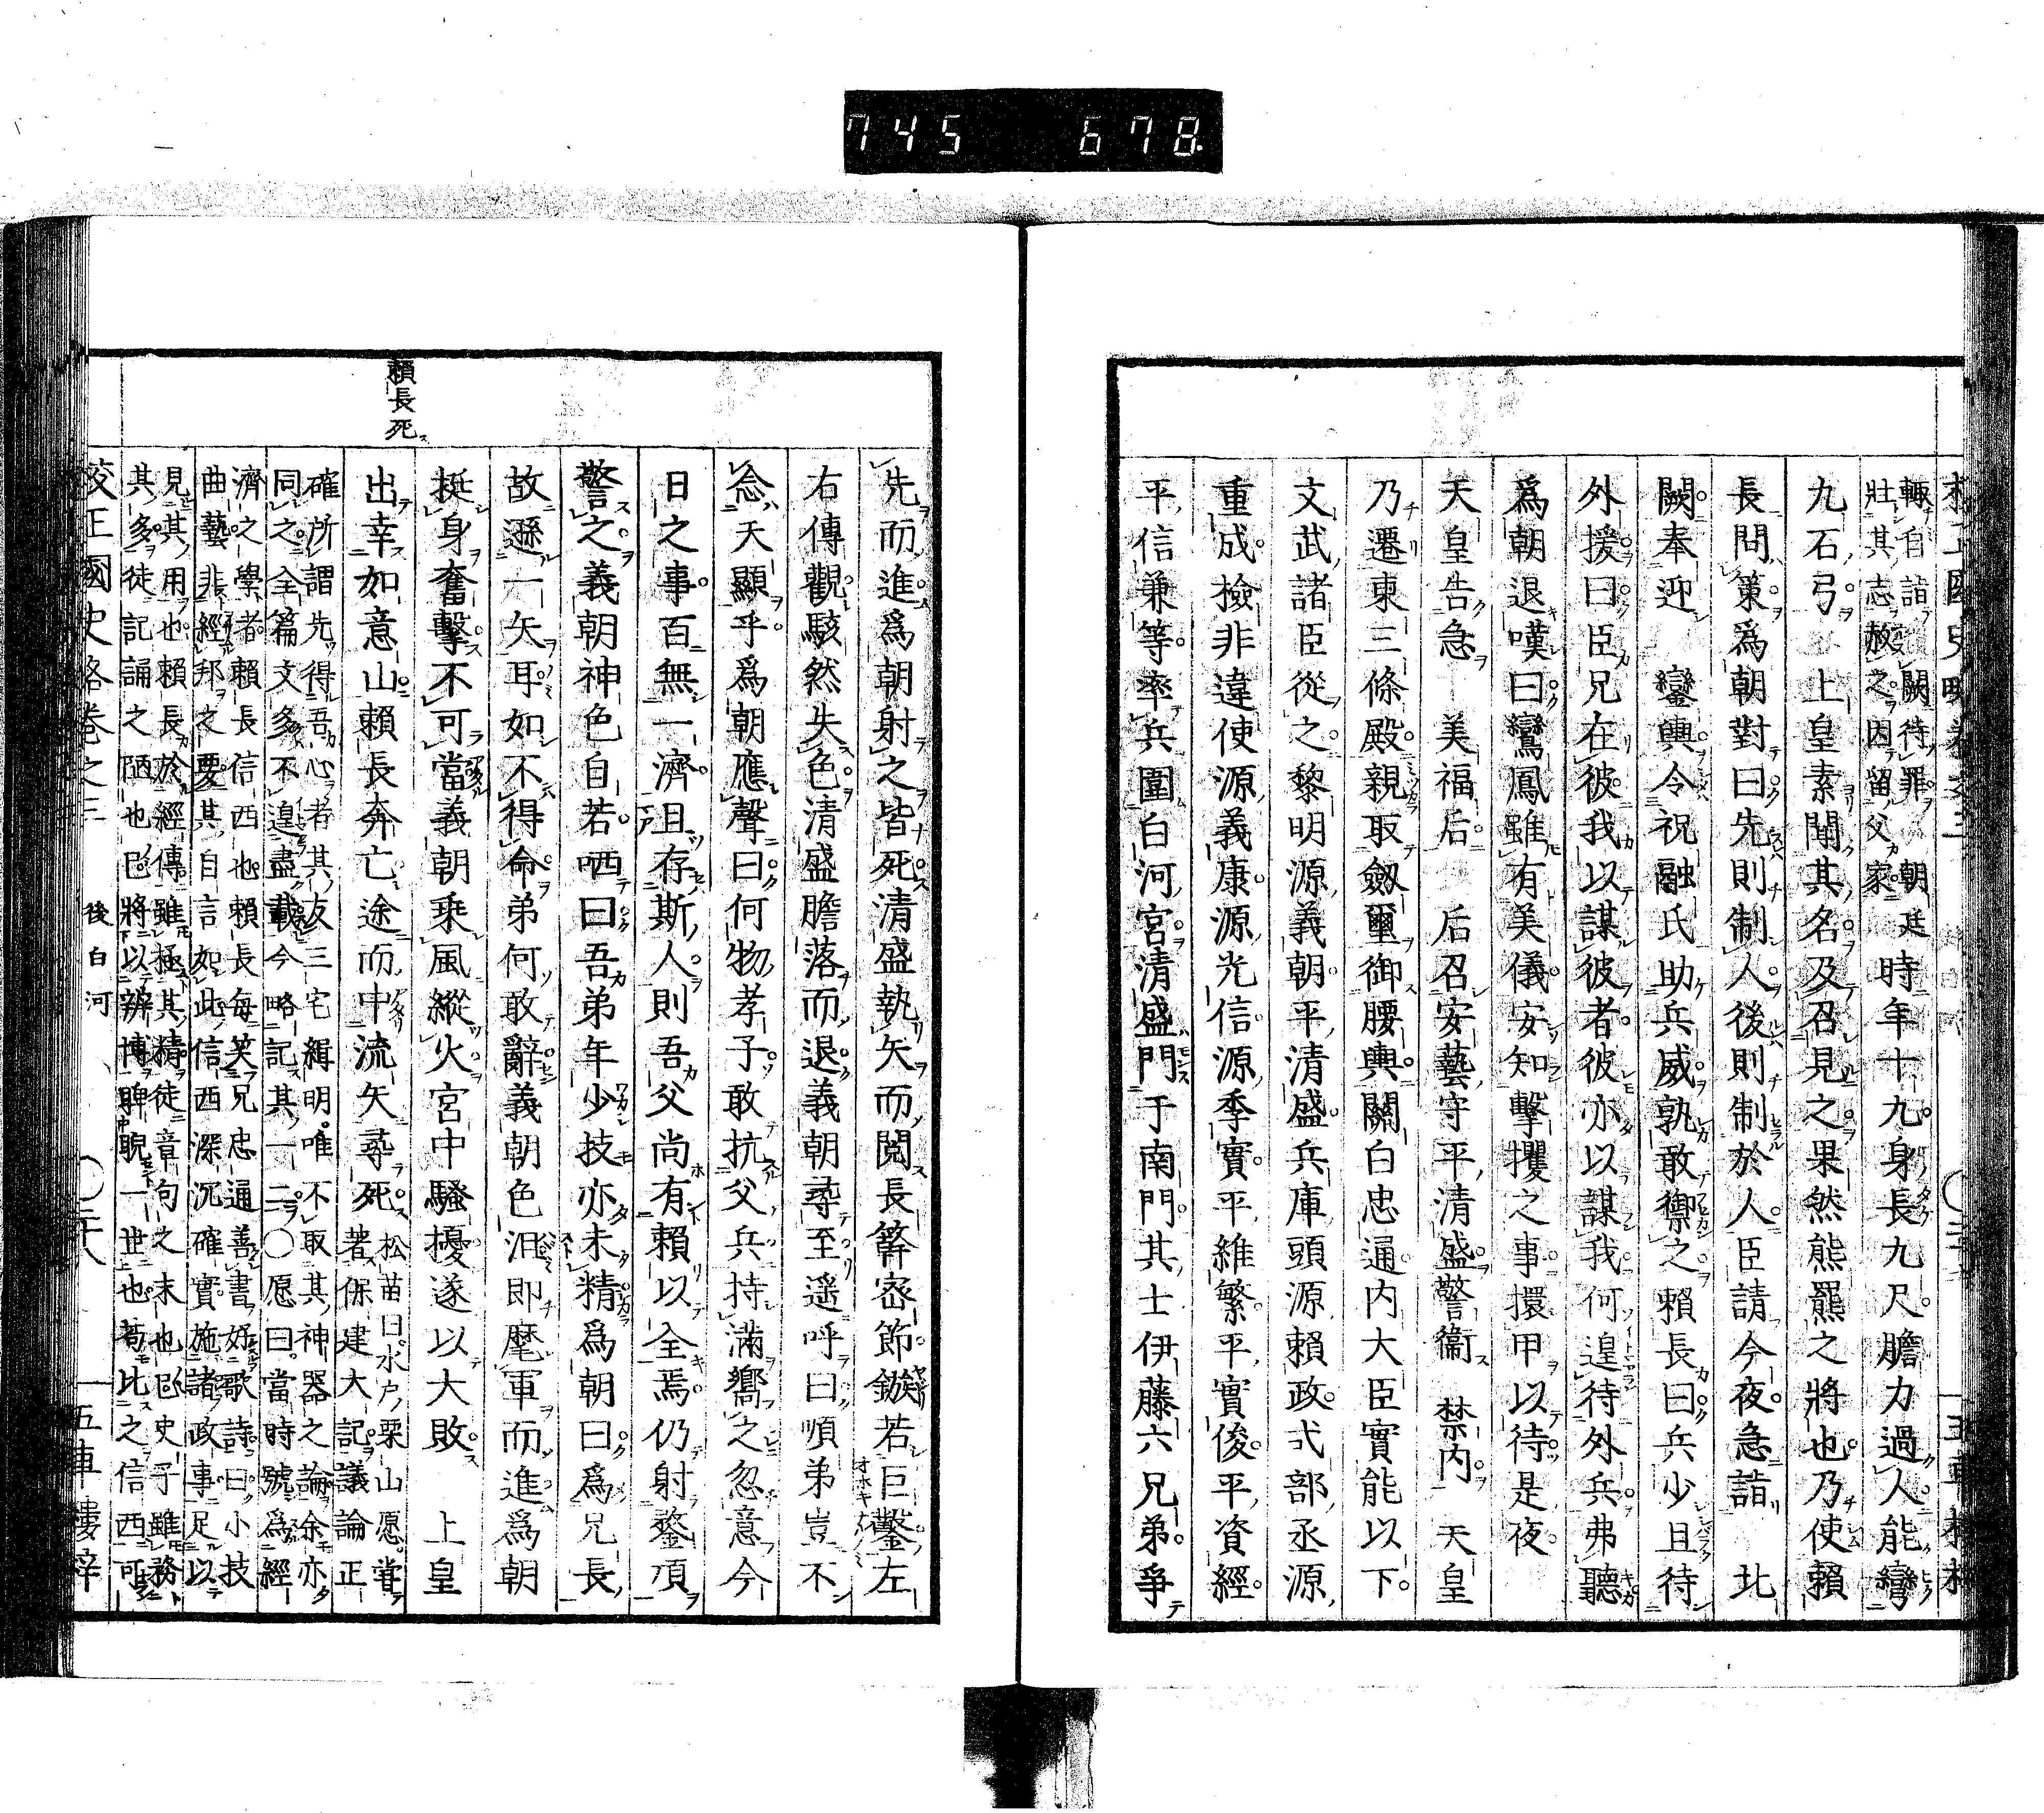 745 678
輙自詣闕待罪朝廷
壯其志赦之因留父家
時年十九身長九尺膽力過人能彎
九石弓上皇素聞其名及召見之果然熊羆之將也乃使賴
長問策爲朝對曰先則制人後則制於人臣請今夜急詣北
闕奉迎鑾輿令祝融氏助兵威孰敢禦之賴長曰兵少且待
外援曰臣兄在彼我以謀彼者彼亦以謀我何遑待外兵弗聽
爲朝退嘆曰鸞鳳雖有美儀安知擊攫之事擐甲以待是夜
天皇告急美福后后召安藝守平清盛警衞禁内天皇
乃遷東三條殿親取劔璽御腰輿關白忠通内大臣實能以下
文武諸臣從之黎明源義朝平清盛兵庫頭源賴政弍部丞源
重成撿非違使源義康源光信源季實平維繁平實俊平資經
平信兼等率兵圍白河宮清盛門于南門其士伊藤六兄弟爭
賴長死
先而進爲朝射之皆死清盛執矢而閲長簳密節鏃若巨鑿左
右傳觀駭然失色清盛膽落而退義朝尋至遥呼曰順弟豈不
念天顯乎爲朝應聲曰何物孝子敢抗父兵持滿嚮之忽意今
日之事百無一濟且存斯人則吾父尚有賴以全焉仍射鍪頂
警之義朝神色自若哂曰吾弟年少技亦未精爲朝曰爲兄長
故遜一矢耳如不得命弟何敢辭義朝色沮即麾軍而進爲朝
挺身奮擊不可當義朝乘風縱火宮中騷擾遂以大敗上皇
出幸如意山賴長奔亡途而中流矢尋死
松苗曰水户粟山愿嘗
著保建大記議論正
確所謂先得吾心者其友三宅緝明唯不取其神器之論余亦
同之全篇文多不遑盡載今略記其一二〇愿曰當時號爲經
濟之學者賴長信西也賴長每笑兄忠通善書好歌詩曰小技
曲藝非經邦之要其自言如此信西深沉確實施諸政事足以
見其用也賴長於經傳雖極其精徒章句之末也已史子雖務
其多徒記誦之陋也已將以辨博睥睨一世也蔦比之信西可
校正國史略卷之三 後白河 〇二十八 五車樓梓